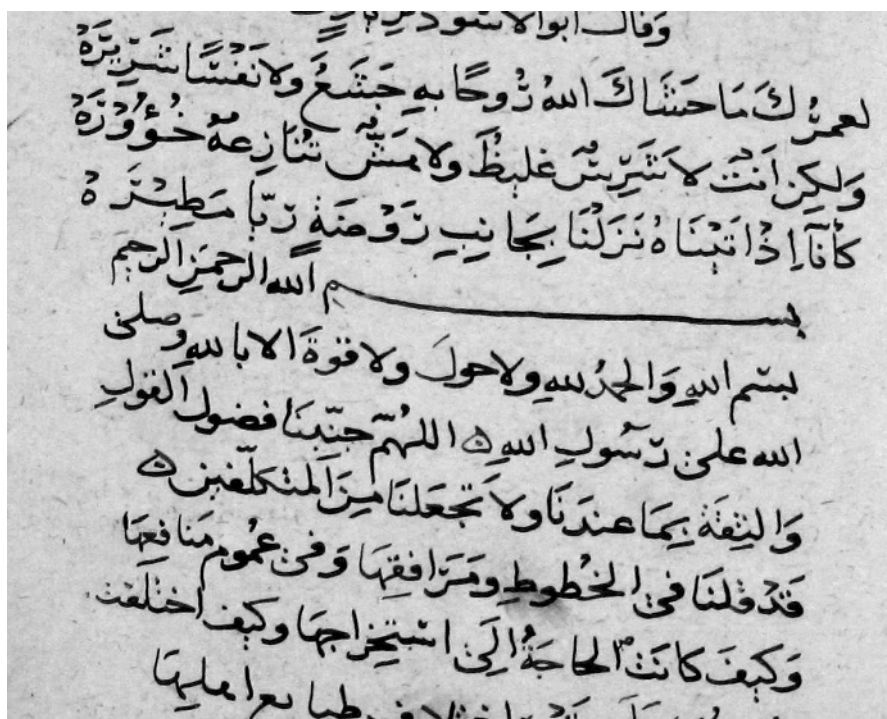 وقال ابو الاسود
لعمرُكَ مَا حَشَاكَ اللهُ رُوحًا بهِ جَشَعُ وَلا نَفْسًا شَرِيرَهْ
وَلكِن اَنتَ لا شَرِسٌ غليظٌ ولا هَشٌّ تُنَازِعهُ خُؤُورَهْ
كأنَّا اِذْ اَتَيْنَاهُ نَزَلْنَا بِجَانِبِ رَوْضَةٍ رَيَّا مَطِيْرَهْ
بسم الله الرحمنِ الرحيم
بسم اللهِ وَالحمدُ للهِ ولا حولَ ولا قوةَ الا باللهِ وصلى
الله على رَسُولِ اللهِ ۞ اللهُمّ جنّبنَا فضول القولِ
وَالثِقةَ بِمَا عندَنَا ولا تَجْعَلنَا مِنَ المتكلّفين ۞
قَدْ قُلنَا في الخُطُوطِ ومَرَافقِهَا وَفي عُمُومِ مَنَافعِهَا
وَكيفَ كانَتْ الحاجَةُ اِلَى اسْتِخْرَاجهَا وكيف اختلفت
طبايع اهلِهَا